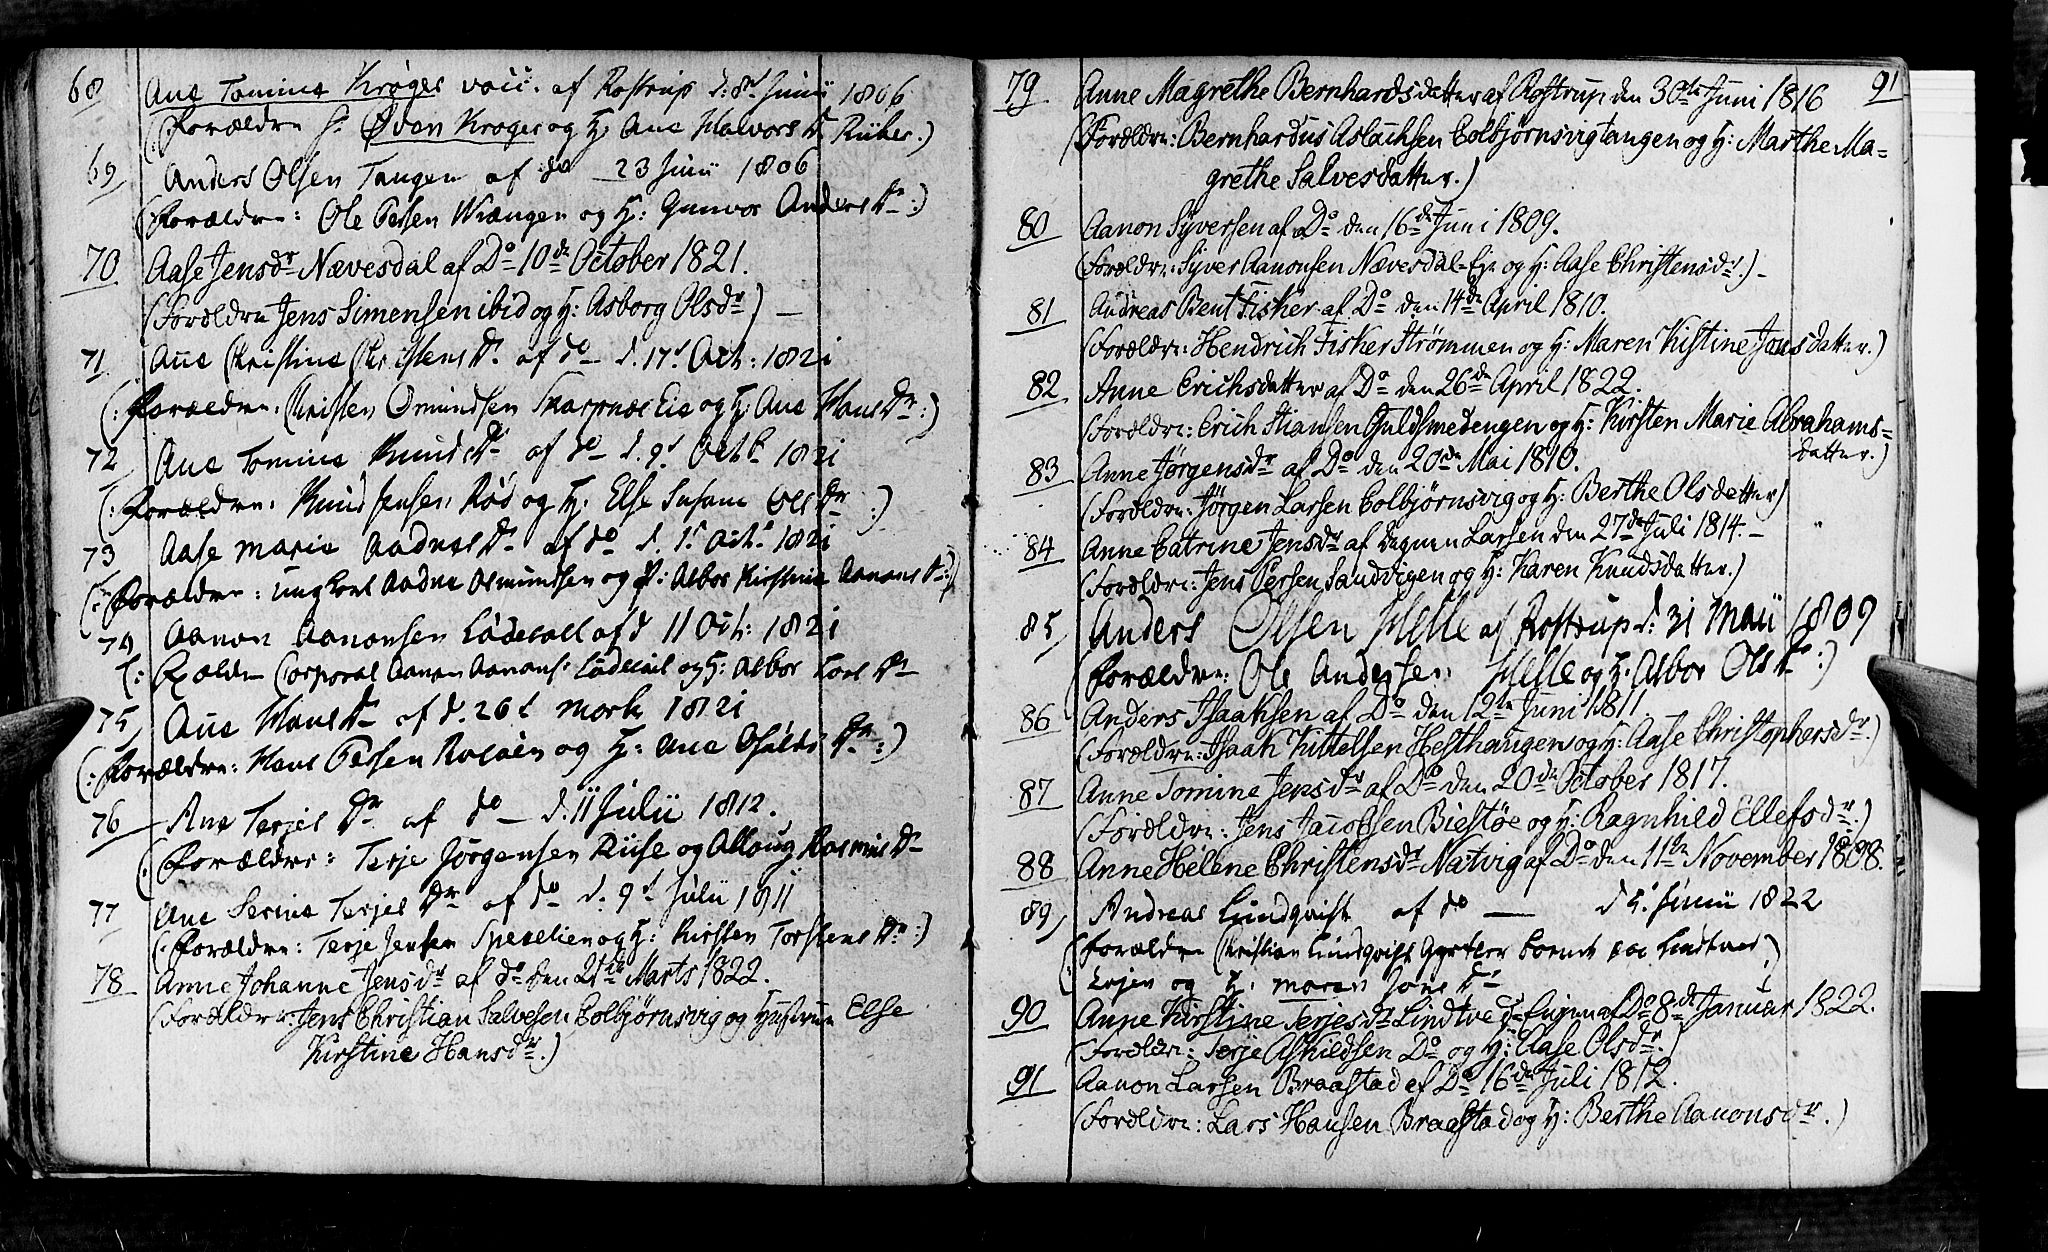 68 Ane Tomine Krøger vacc. af Rostrup d: 8d Junii 1806
(: Forældre Hr Øven Krøger og H: Ane Halvors Dr Riiber.)
69 Anders Olsen Tangen af do 23 Junii 1806
(Forældre: Ole Persen Wrængen og H: Gunvor Anders Dr :)
70 Aase Jensdr Nævesdal af Do 10de October 1821.
(Forældre Jens Simensen ibid og H: Asborg Olsdr)
71 Ane Christine Christens Dr af do d. 17d Oct: 1821
(: Forældre: Christen Omundsen Skarpnæs Eie og H: Ane Hans Dr :)
72 Ane Tomine Knuds Dr af do d. 9d Octb 1821
(: Forældre: Knud Jensen Røs og H: Else Susane Ols Dr :)
73 Aase Marie Aadnes Dr af do d. 1d Octb 1821
(: Forældre: ungkarl Aadne Osmundsen og P: Asbor Kirstine Aanons Dr :)
74 Aanon Aanonsen Lødesøll af d 11 Oct: 1821
(: Forældre Corporal Aanon Aanons: Lødesøl og H: Asbor Lars Dr
75 Ane Hans Dr af d. 26d Marts 1821
(: Forældre: Hans Persen Roløen og H: Ane Osulds Dr :)
76 Ane Terjes Dr af do d. 11 Julii 1812.
(: Forældre: Terje Jørgensen Riise og Alloug Rasmus Dr
77 Ane Serine Terjes Dr af do d. 9d Julii 1811
(: Forældre: Terje Jensen Spedelien og H: Kirsten Torstens Dr :)
78 Anne Johanne Jensdr af do den 21de Marts 1822.
(Forældre: Jens Christian Salvesen Colbjørnsvig og Hustrue Else
Kirstine Hansdr.)
91
79 Anne Magrethe Bernhardsdatter af Rostrup den 30te Juni 1816
(Forældre: Bernhardus Aslachsen Colbjørnsvigtangen og H: Marthe Ma=
grethe Salvesdatter.)
80 Aanon Syversen af Do den 16de Juni 1809.
(Forældre: Syver Aanonsen Nævesdal-Eje og H: Aase Christensdr.)
81 Andreas Bent Fisker af Do den 14de April 1810.
(Forældre: Hendrich Fisker Strømmen og H: Maren Kistine Jensdatter.)
82 Anne Erichsdatter af Do den 26de April 1822.
(Forældre: Erich Stiansen Guldsmedengen og H: Kirsten Marie Abrahams=
datter.)
83 Anne Jørgensdr af Do den 20de Mai 1810.
(Forældre: Jørgen Larsen Colbjørnsvig og H: Berthe Olsdatter)
84 Anne Catrine Jensdr af Larsen den 27de Juli 1814.
(Forældre: Jens Persen Sandvigen og H: Karen Knudsdatter.)
85 Anders Olsen Helle af Rostrup d: 31 Maii 1809
(Forældre: Ole Andersen Helle og H: Asbor Ols Dr :)
86 Anders Isaaksen af Do den 12te Juni 1811.
(Forældre: Isaak Kittelsen Hesthaugen og H: Aase Christophersdr.)
87 Anne Tomine Jensdr af Do den 20de October 1817.
(Forældre: Jens Jacobsen Biestøe og H: Ragnhild Ellefsdr.)
88 Anne Helene Christensdr Natvig af Do den 11te November 1808.
89 Andreas Lindqvist af do d 5. Junii 1822
(: Forældre Christian Lindqvist Gørtler boende paa Lindtved
Eijen og H: Maren Jons Dr
90 Anne Kirstine Terjesdr Lindtveds-Enjen af Do 8de Januar 1822.
(Forældre: Terje Askildsen Do og H: Aase Olsdr.)
91 Aanon Larsen Braastad af Do 16de Juli 1812.
(Forældre: Lars Hansen Braastad og H: Berthe Aanonsdr.)